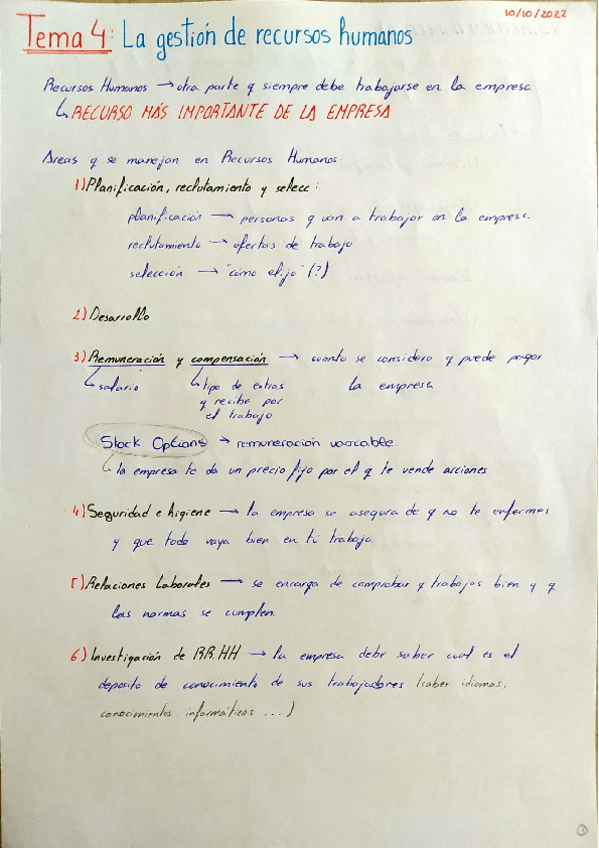 10/10/2022
Tema 4: La gestión de recursos humanos
Recursos Humanos → otra parte q siempre debe trabajarse en la empresa
↳ RECURSO MÁS IMPORTANTE DE LA EMPRESA
Areas q se manejan en Recursos Humanos:
1) Planificación, reclutamiento y selecc:
planificación → personas q van a trabajar en la empresa
reclutamiento → ofertas de trabajo
selección → "cómo elijo" (?)
2) Desarrollo
3) Remuneración y compensación → cuanto se considera q puede pagar
↳ salario ↳ tipo de extras la empresa
q recibe por
el trabajo
Stock Options → remuneración variable.
↳ la empresa te da un precio fijo por el q te vende acciones
4) Seguridad e higiene → la empresa se asegura de q no te enfermes
y que todo vaya bien en tú trabajo
5) Relaciones Laborales → se encarga de comprobar q trabajas bien y q
las normas se cumplen.
6) Investigación de RRHH → la empresa debe saber cual es el
deposito de conocimiento de sus trabajadores (saber idiomas,
conocimientos informáticos ...)
1